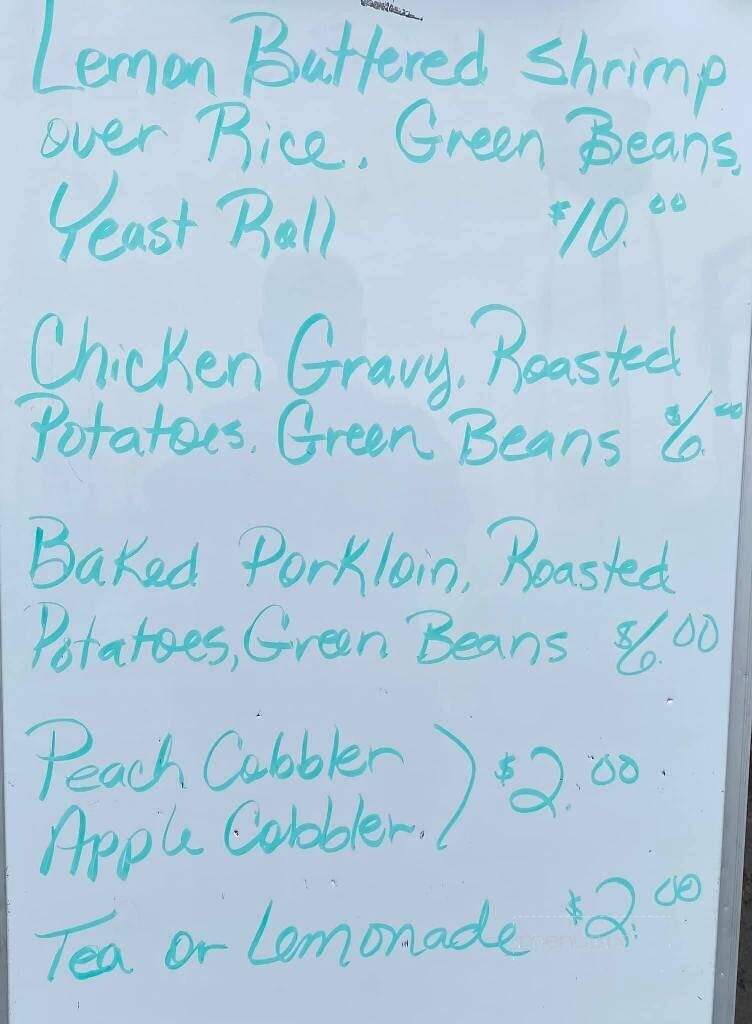 Lemon Buttered Shrimp
over Rice, Green Beans,
Yeast Roll $10.00
Chicken Gravy, Roasted
Potatoes, Green Beans $6.00
Baked Porkloin, Roasted
Potatoes, Green Beans $6.00
Peach Cobbler
Apple Cobbler ) $2.00
Tea or Lemonade $2.00